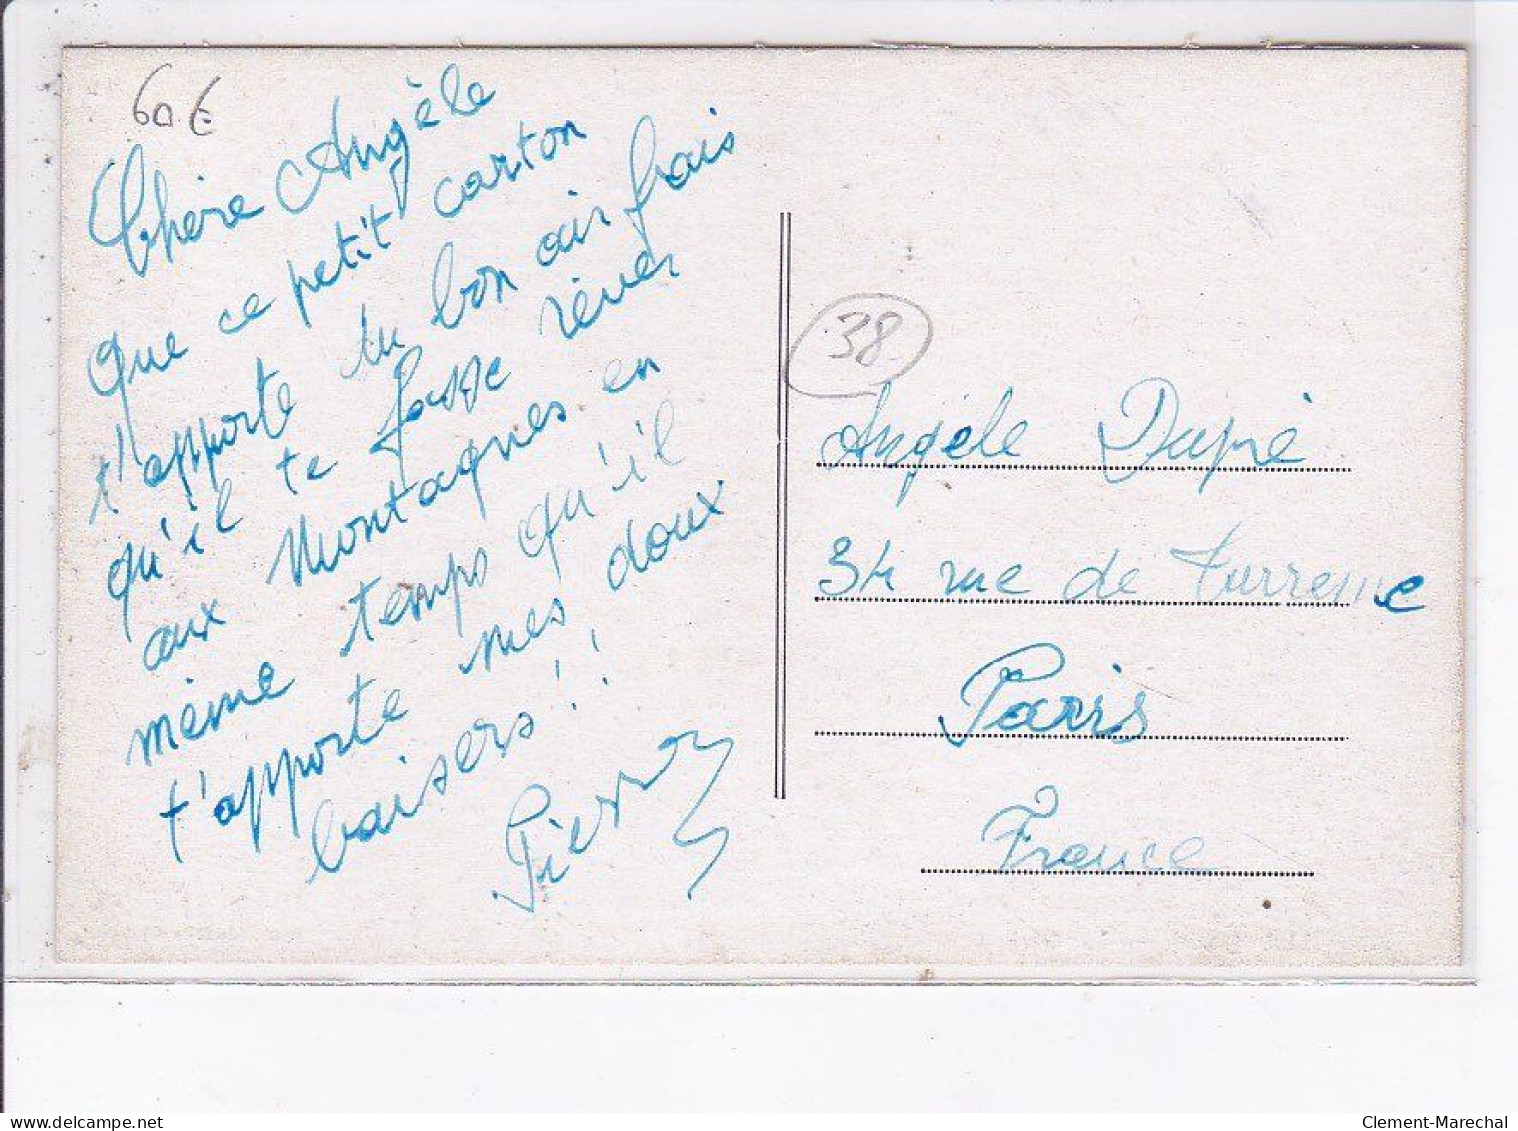 60€
Chère Angèle
Que ce petit carton
t'apporte du bon air frais
qu'il te fasse rêver
aux Montagnes en
même temps qu'il
t'apporte mes doux
baisers!!
38
Angèle Dupré
34 rue de Turrenne
Paris
France
delcampe.net
Clement-Marechal